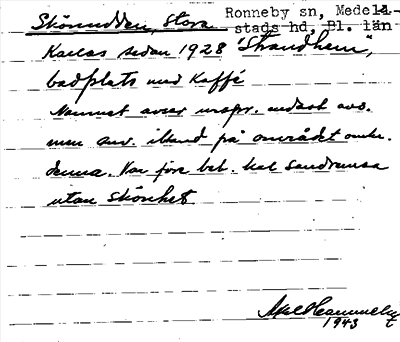 Skönudden, Stora
Ronneby sn, Medela-
stads hd, Bl. län
Kallas sedan 1928 "Strandhem",
badplats med Kaffé
Namnet avser urspr. endast
men anv. ibland på området omkr.
denna. Var före bel.
utan skönhet
Axel
1943